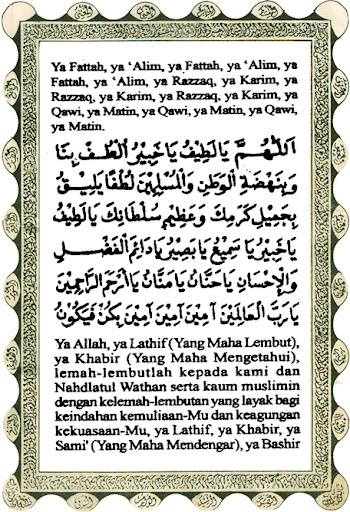 Ya Fattah, ya ‘Alim, ya Fattah, ya ‘Alim, ya
Fattah, ya ‘Alim, ya Razzaq, ya Karim, ya
Razzaq, ya Karim, ya Razzaq, ya Karim, ya
Qawi, ya Matin, ya Qawi, ya Matin, ya Qawi,
ya Matin.
اَللّٰهُمَّ يَالَطِيْفُ يَاخَبِيْرُ اُلْطُفْ بِنَا
وَبِنَهْضَةِ الْوَطَنِ وَالْمُسْلِمِيْنَ لُطْفًا يَلِيْقُ
بِجَمِيْلِ كَرَمِكَ وَعَظِيْمِ سُلْطَانِكَ يَالَطِيْفُ
يَاخَبِيْرُ يَاسَمِيْعُ يَابَصِيْرُ يَادَائِمَ الْفَضْلِ
وَالْإِحْسَانِ يَاحَنَّانُ يَامَنَّانُ يَاأَرْحَمَ الرَّاحِمِيْنَ
يَارَبَّ الْعَالَمِيْنَ آمِيْنَ آمِيْنَ آمِيْنَ بِكُنْ فَيَكُوْنُ
Ya Allah, ya Lathif (Yang Maha Lembut),
ya Khabir (Yang Maha Mengetahui),
lemah-lembutlah kepada kami dan
Nahdlatul Wathan serta kaum muslimin
dengan kelemah-lembutan yang layak bagi
keindahan kemuliaan-Mu dan keagungan
kekuasaan-Mu, ya Lathif, ya Khabir, ya
Sami' (Yang Maha Mendengar), ya Bashir